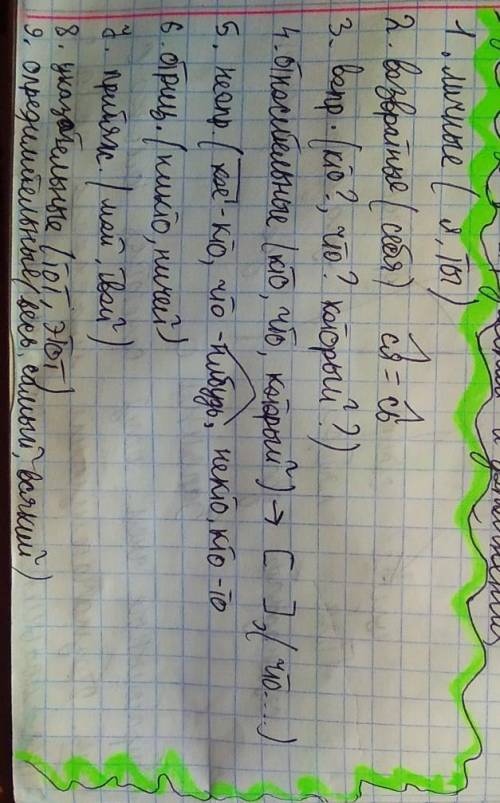 1. личные ( я, ты )
2. возвратные ( себя ) ся = сь
3. вопр. ( кто?, что? который? )
4. относительные ( кто, что, который ) → [ ], ( что.... )
5. неопр. ( кое - кто, что - нибудь, некто, кто - то
6. отриц. ( никто, ничей )
7. притяж. ( мой, твой )
8. указательные ( тот, этот )
9. определительные ( весь, самый, всякий )